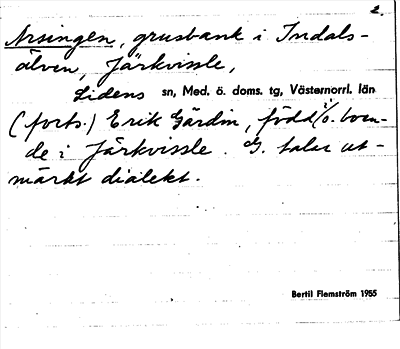 2.
Nrsingen, grusbank i Indals-
älven, Järkvissle,
Lidens sn, Med. ö. doms. tg, Västernorrl. län
(forts.) Erik Gärdin, född i o. boen-
de i Järkvissle. G. talar ut-
märkt dialekt.
Bertil Flemström 1955